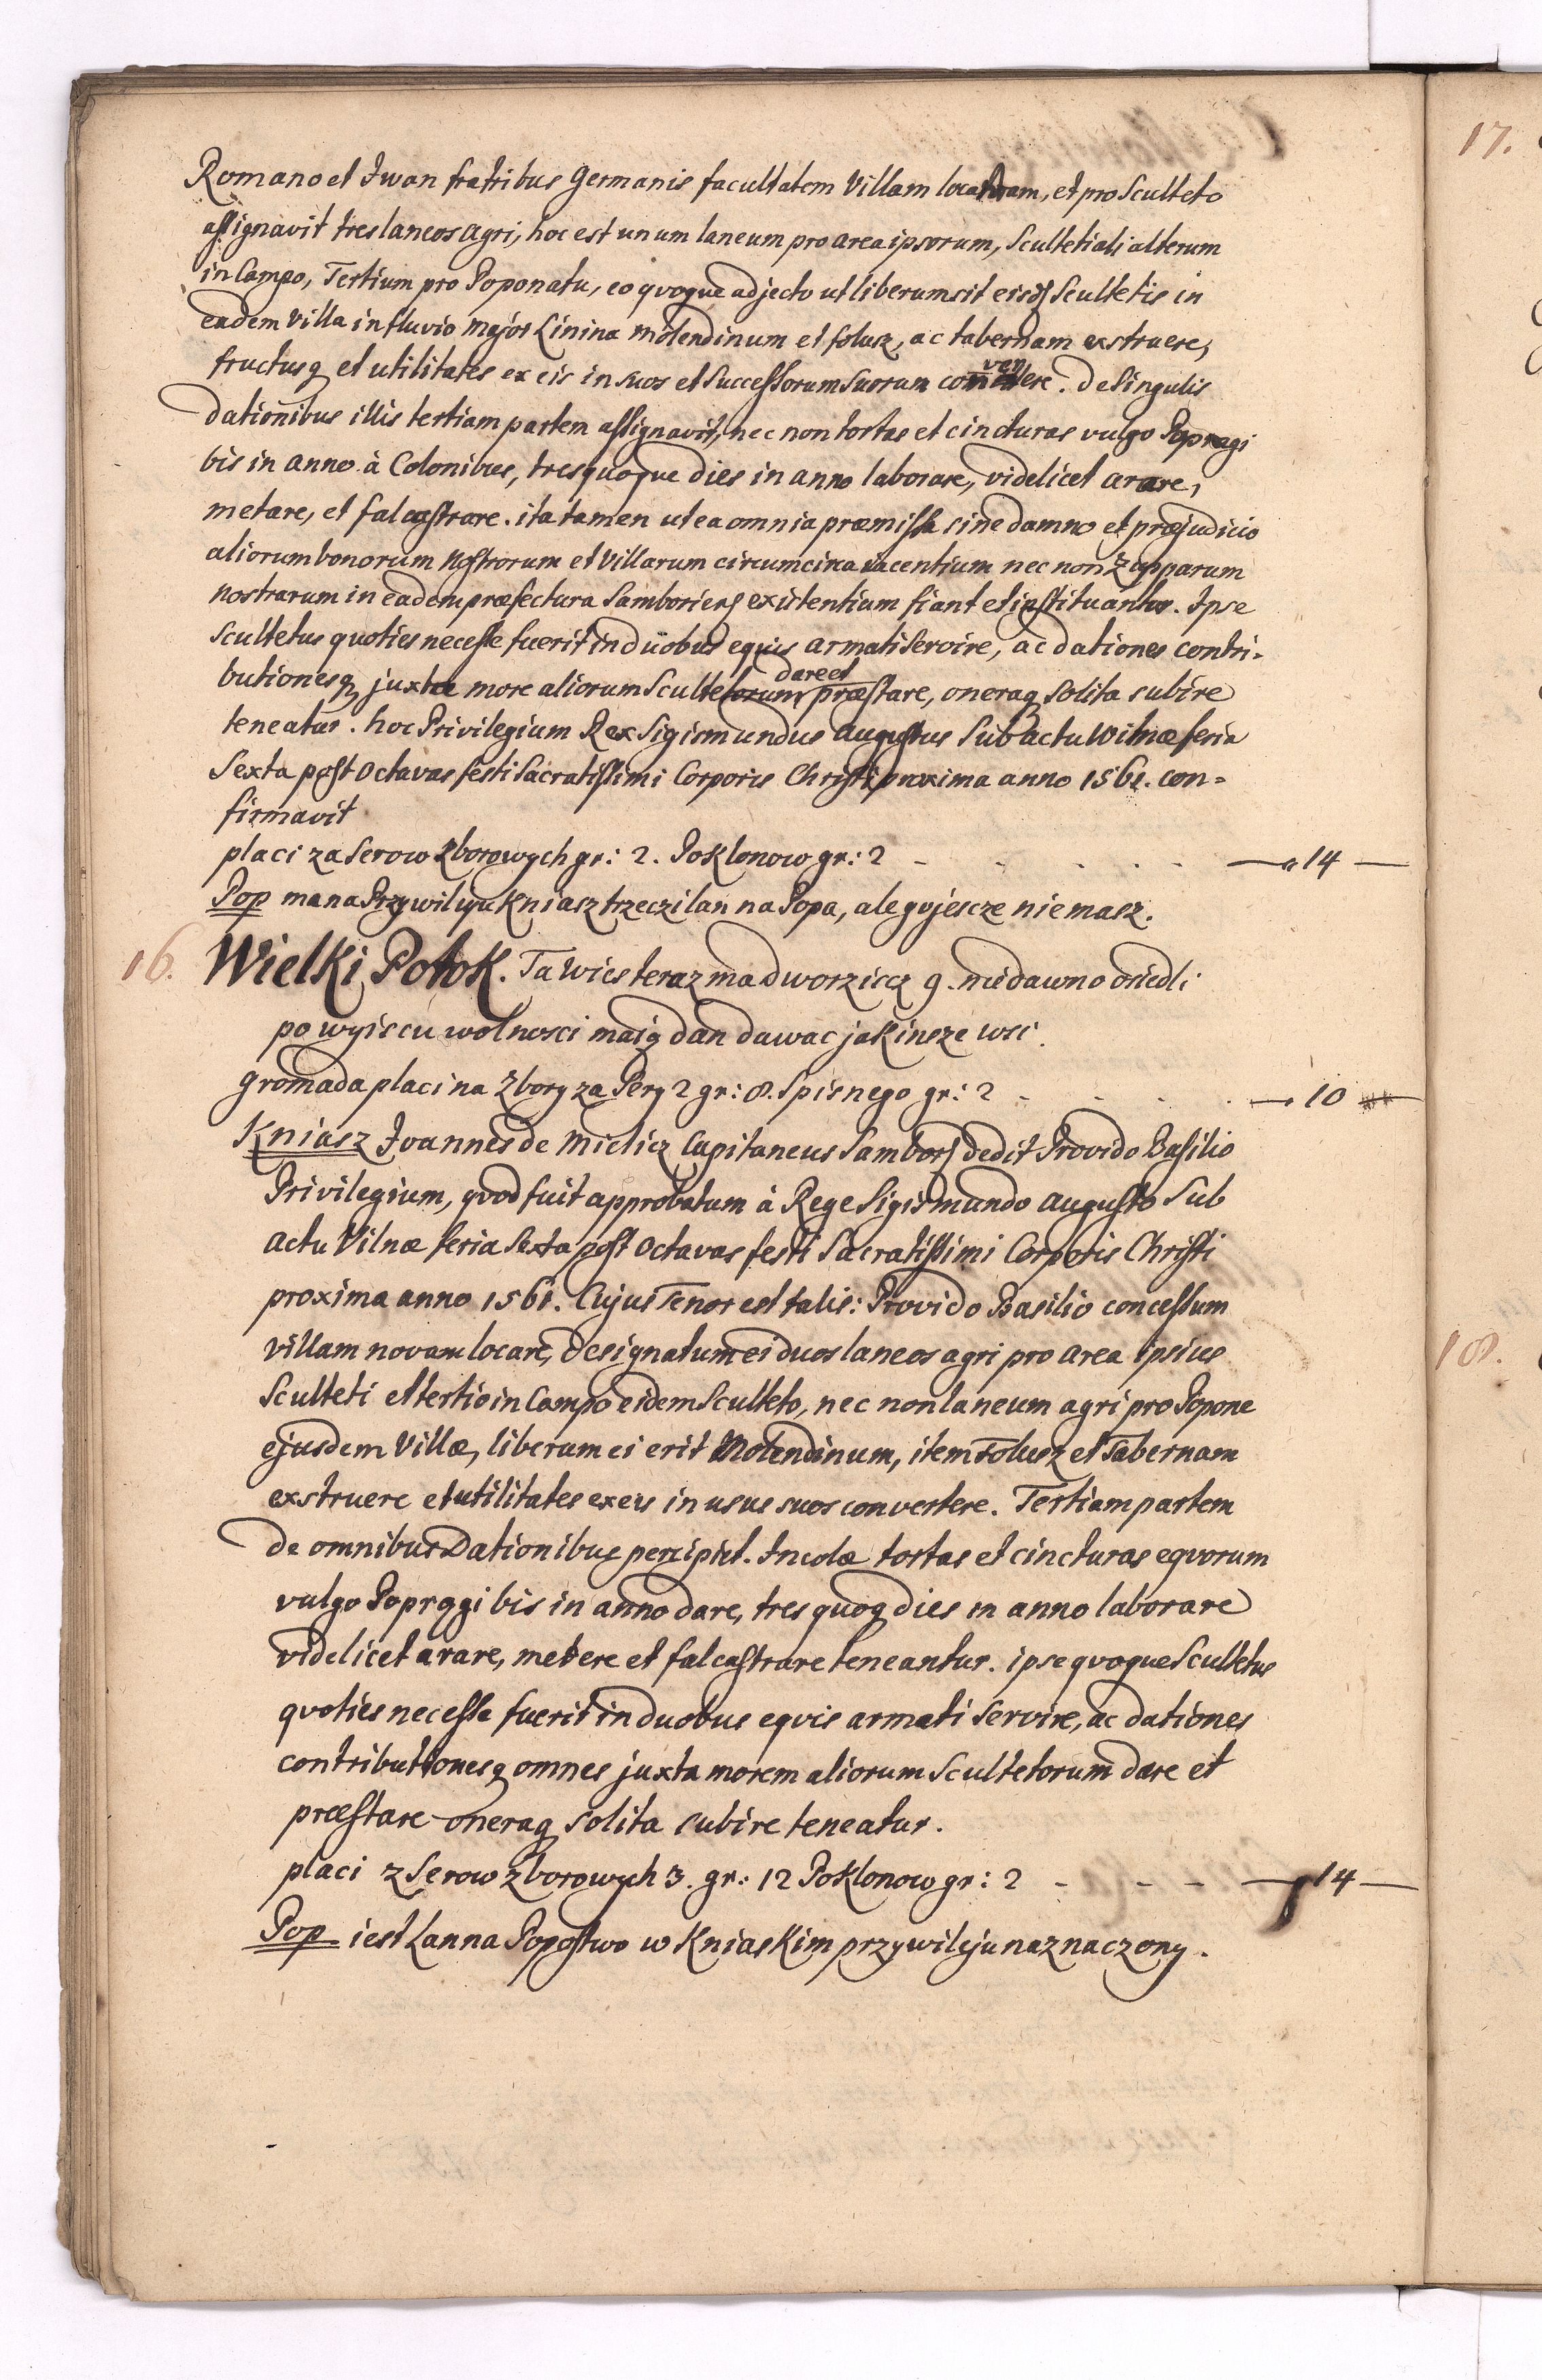 Romano et Iwan fratribus Germanis facultatem Villam locandam, et pro Sculteto
assignavit tres laneos agri, hoc est unum laneum pro area ipsorum, Scultetiali alterum
in Campo, Tertium pro Poponatu, eo qvoque adjecto ut liberum sit eisd Scultetis in
eadem Villa in fluvio major Linina molendinum et folusz, ac tabernam exstruere,
fructusq et utilitates ex eis in suos et Successorum suorum convertere. De singulis
dationibus illis tertiam partem assignavit, nec non tortas et cincturas vulgo Popregi
bis in anno à Colonibus, tres quoque dies in anno laborare, videlicet arare,
metare, et falcastrare. ita tamen ut ea omnia præmissa sine damno et præjudicio
aliorum bonorum Nostrorum et Villarum circumcirca iacentium nec non Zupparum
nostrarum in eadem præfectura Samboriens existentium fiant et instituantur. Ipse
Scultetus quoties necesse fuerit in duobus equis armati Servire, ac dationes contri-
butionesq juxta more aliorum Scultetorum dare et præstare, oneraq solita subire
teneatur. hoc Privilegium Rex Sigismundus Augustus Sub actu Wilnæ feria
Sexta post Octavas festi Sacratissimi Corporis Christi proxima anno 1561. con-
firmavit
placi za Serow Zborowych gr: 2. Poklonow gr: 2 - - - - - 14 -
Pop ma na Przywileyu Kniasz trzeczi lan na Popa, ale go jescze nie masz.
16. Wielki Potok. Ta Wies teraz ma dworziscz 9. niedawno osiedli
po wyiscu wolnosci maią dan dawac jak insze wsi.
gromada placi na Zbory za Pery 2 gr: 8. Spisnego gr: 2 - - - - 10
Kniasz Joannes de Mielicz Capitaneus Sambors dedit Provido Basilio
Privilegium, qvod fuit approbatum à Rege Sigismundo Augusto Sub
actu Vilnæ feria Sexta post Octavas festi Sacratissimi Corporis Christi
proxima anno 1561. Cujus Tenor est talis: Provido Basilio concessum
villam novam locare, designatum ei duos laneos agri pro area ipsius
Sculteti et tertio in Campo eidem Sculteto, nec non laneum agri pro Popone
ejusdem Villæ, liberum ei erit Molendinum, item Folusz et Tabernam
exstruere et utilitates ex eis in usus suos convertere. Tertiam partem
de omnibus Dationibus percipiet. Incolæ tortas et cincturas eqvorum
vulgo Popręgi bis in anno dare, tres quoq dies in anno laborare
videlicet arare, metere et falcastrare teneantur. ipse qvoque Scultetus
qvoties necesse fuerit in duobus eqvis armati Servire, ac dationes
contributionesq omnes juxta morem aliorum Scultetorum dare et
præstare oneraq solita subire teneatur.
placi z Serow Zborowych 3. gr: 12 Poklonow gr: 2 - - - - 14 -
Pop iest Lan na Popostwo w Kniaskim przywileju naznaczony.
17.
18.